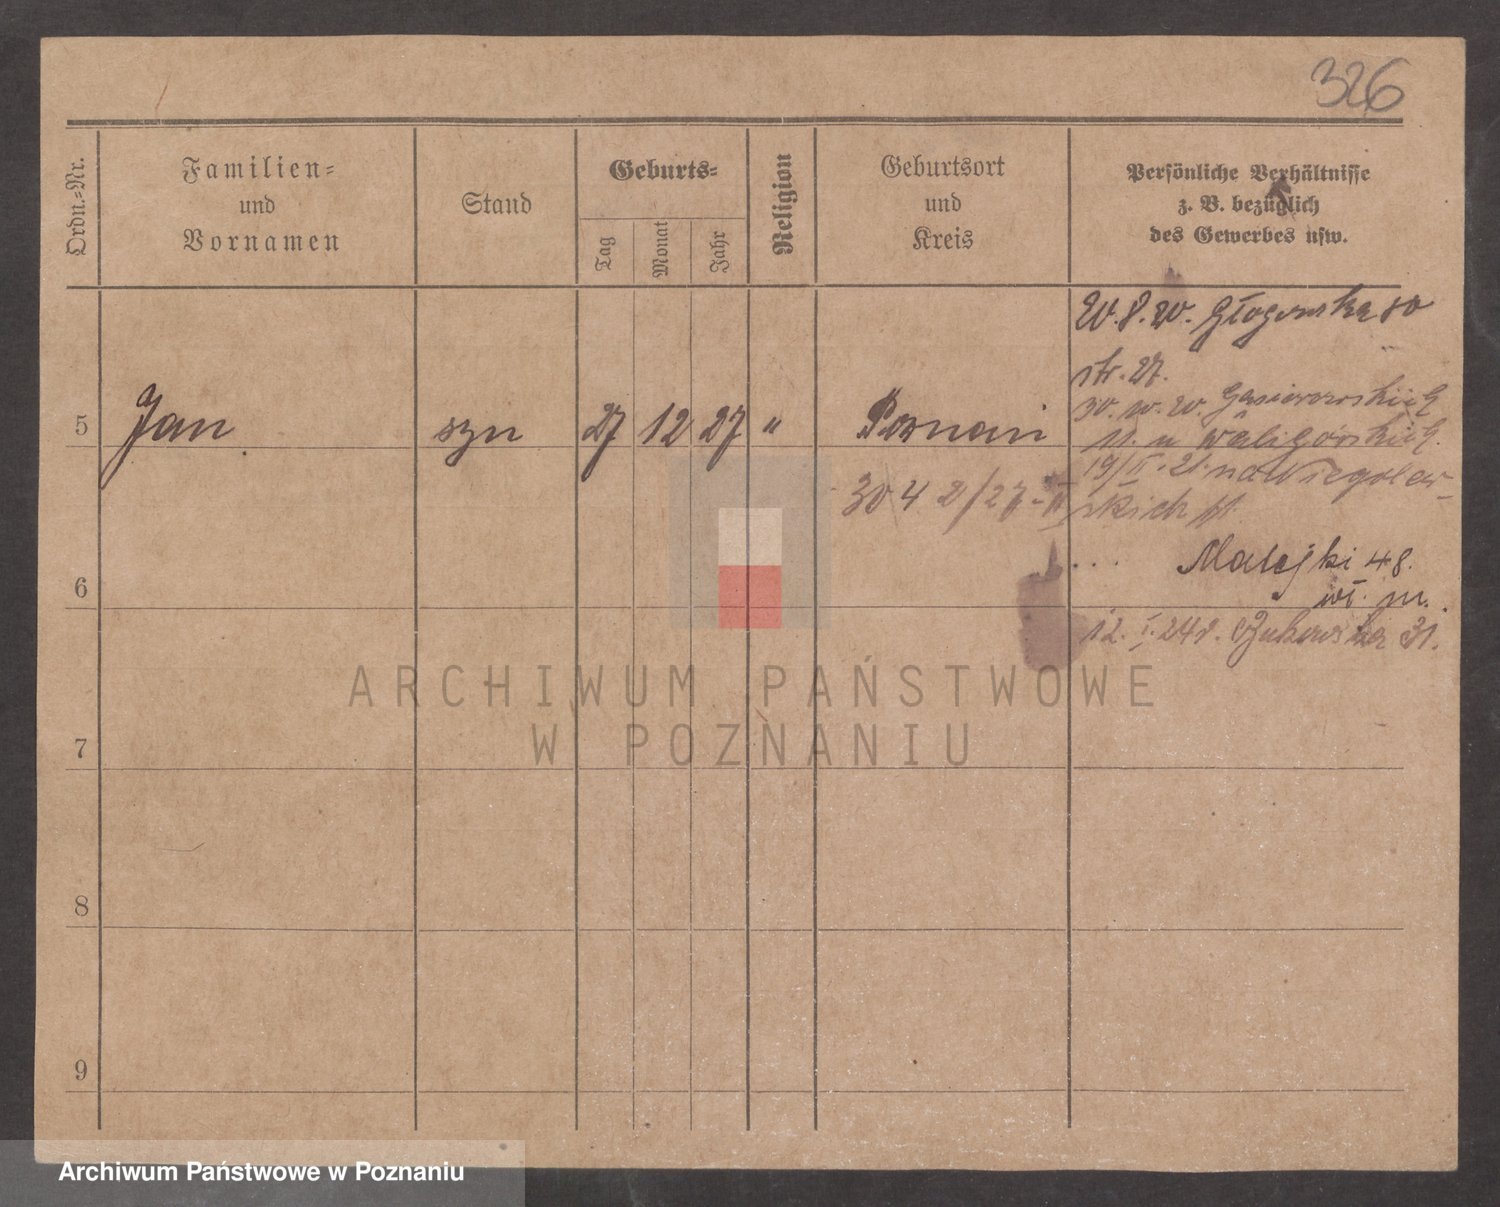 326
Ordn.-Nr.
Familien-
und
Vornamen
Stand
Geburts-
Tag
Monat
Jahr
Religion
Geburtsort
und
Kreis
Persönliche Verhältnisse
z. B. bezüglich
des Gewerbes usw.
Głogowska 80
str. 27.
5 Jan szn 27 12 27 " Poznań
30 4 2/27
19/II. 21. na Niegolew-
skich
6
Matejki 48.
wł. m.
12. I. 24 r. Żukowska 31.
7
8
9
ARCHIWUM PAŃSTWOWE
W POZNANIU
Archiwum Państwowe w Poznaniu